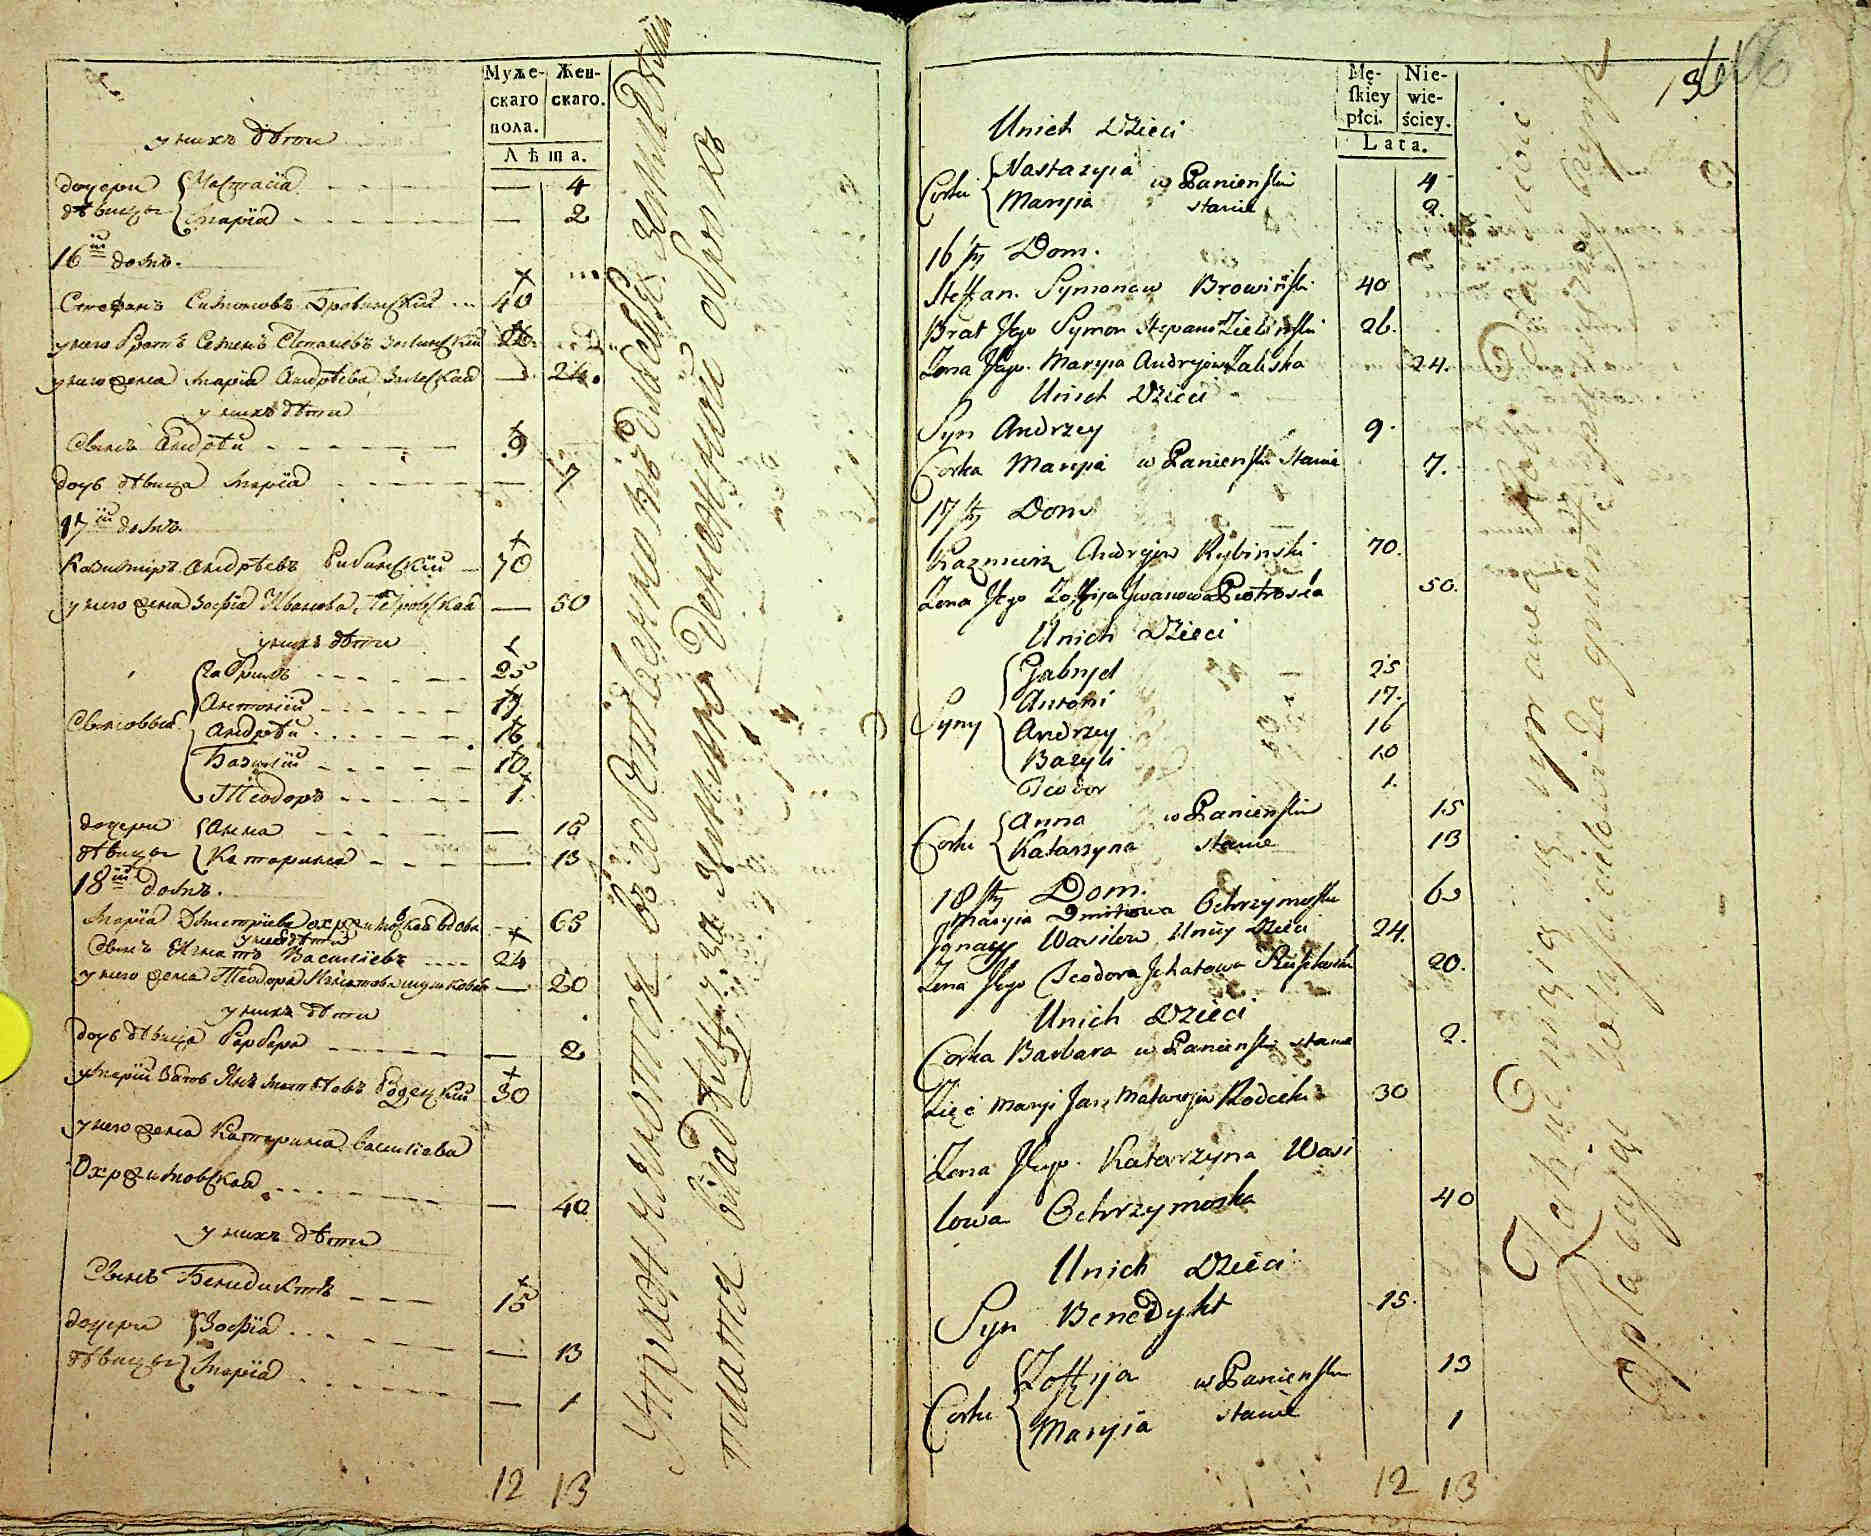 Муже-
скаго
пола.
Жен-
скаго.
Лѣта.
у нихъ дѣти
дочери Настасіа — 4
дѣвицы Марїа — 2
16й домъ.
Стефанъ Симоновъ Бровинскїй 40
у него братъ Семенъ Степановъ Зелинскїй 26
у него жена Марїа Андрѣева Залеская — 24.
у нихъ дѣти
Сынъ Андрѣй 9
дочь дѣвица Марїа — 7
17й домъ.
Казимиръ Андрѣевъ Рибинскїй 70
у него жена Зофїа Иванова Петровская — 50
у нихъ дѣти
Гаврилъ 25
Антонїй 17
Сыновья Андрѣй 16
Базилїй 10
Теодоръ 1
дочери Анна — 15
дѣвицы Катарина — 13
18й домъ.
Марїа Дмитрїева Охримовская вдова — 63
у ней дѣти
Сынъ Игнатъ Васильевъ 24
у него жена Теодора — 20
у нихъ дѣти
дочь дѣвица Барбара — 2
у Марїи зять Янъ Матвѣевъ Родецкїй 30
у него жена Катарина Васильева
Охримовская — 40
у нихъ дѣти
Сынъ Бенедиктъ 15
дочери Зофїа — 13
дѣвицы Марїа — 1
12 13
Упражняются въ собственномъ
платя владѣльцу за землю денежный оброкъ
Mę-
skiey
płci.
Nie-
wie-
ściey.
Lata.
13
Unich Dzieci
Corki Nastazyia w Panieńskim 4
Maryia stanie 2.
16sty Dom.
Steffan Symonow Browiński 40
Brat Jego Symon Stepanow Zieliński 26.
Zona Jego Maryia Andryiowa Zaliska 24.
Unich Dzieci
Syn Andrzey 9.
Corka Maryia w Panieńskim stanie 7.
17sty Dom
Kazmierz Andryiow Rybinski 70.
Zona Jego Zoffyia Jwanowa Piotrowska 50.
Unich Dzieci
Gabryel 25
Antoni 17.
Syny Andrzey 16
Bazyli 10
Teodor 1.
Corki Anna w Panieńskim 15
Katarzyna stanie 13
18sty Dom.
Maryia Dmitrowa Ochrzymoska 63
Jgnacy Wasilow Uniey Dzieci 24.
Zona Jego Teodora 20.
Unich Dzieci
Corka Barbara w Panieńskim stanie 2.
Zięć Maryi Jan Matwieyow Rodecki 30
Zona Jego Katarzyna Wasi
lowa Ochrzymoska 40
Unich Dzieci
Syn Benedykt 15.
Corki Zoffyia w Panieńskim 13
Maryia stanie 1
12 13
Zatrudniaią się uprawą roli
opłacaiąc